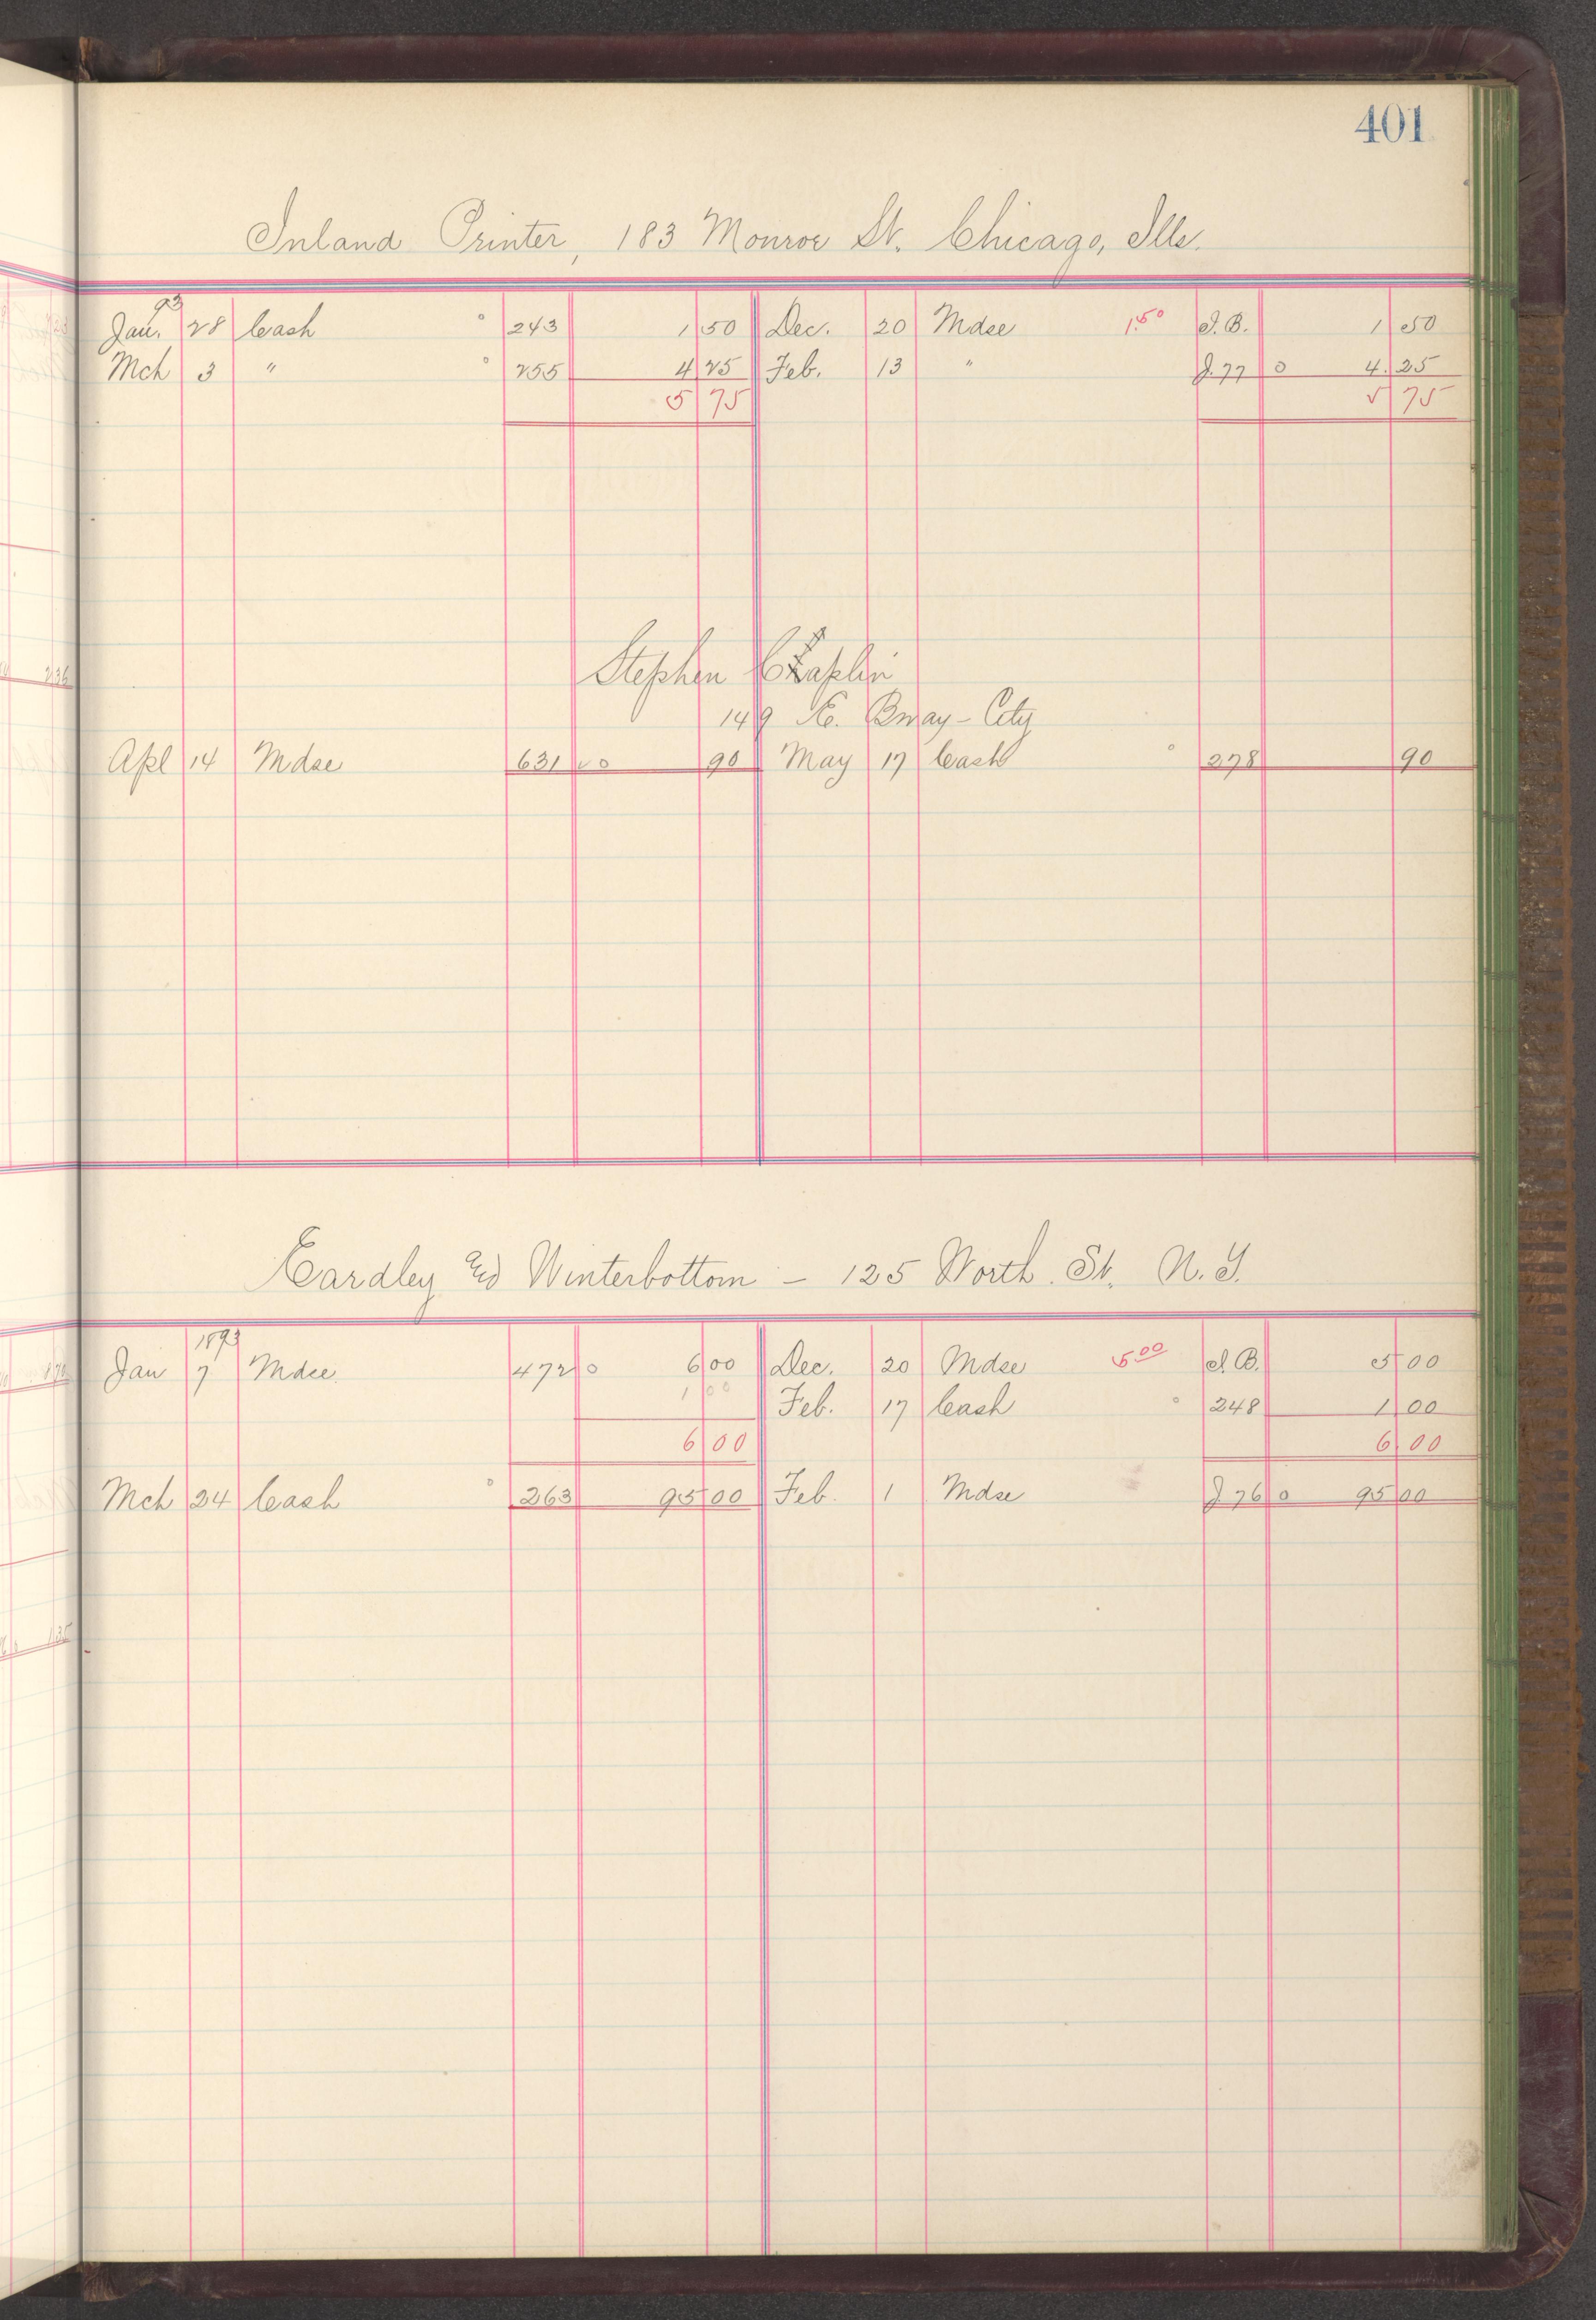 401
Inland Printer, 183 Monroe St. Chicago, Ills.
93
Jan. 28 Cash 243 1 50 Dec. 20 Mdse 1.50 I.B. 1 50
Mch 3 " 255 4 25 Feb. 13 " J.77 0 4.25
5 75 5 75
Stephen Chaplin
149 E. Bway - City
Apl 14 Mdse 631 0 90 May 17 Cash 278 90
Eardley and Winterbottom - 125 Worth. St. N.Y.
1893
Jan 7 Mdse. 472 0 6 00 Dec. 20 Mdse 5 00 I.B. 5 00
1 00 Feb. 17 Cash 248 1 00
6 00 6 00
Mch 24 Cash 263 95 00 Feb. 1 Mdse J.76 0 95 00